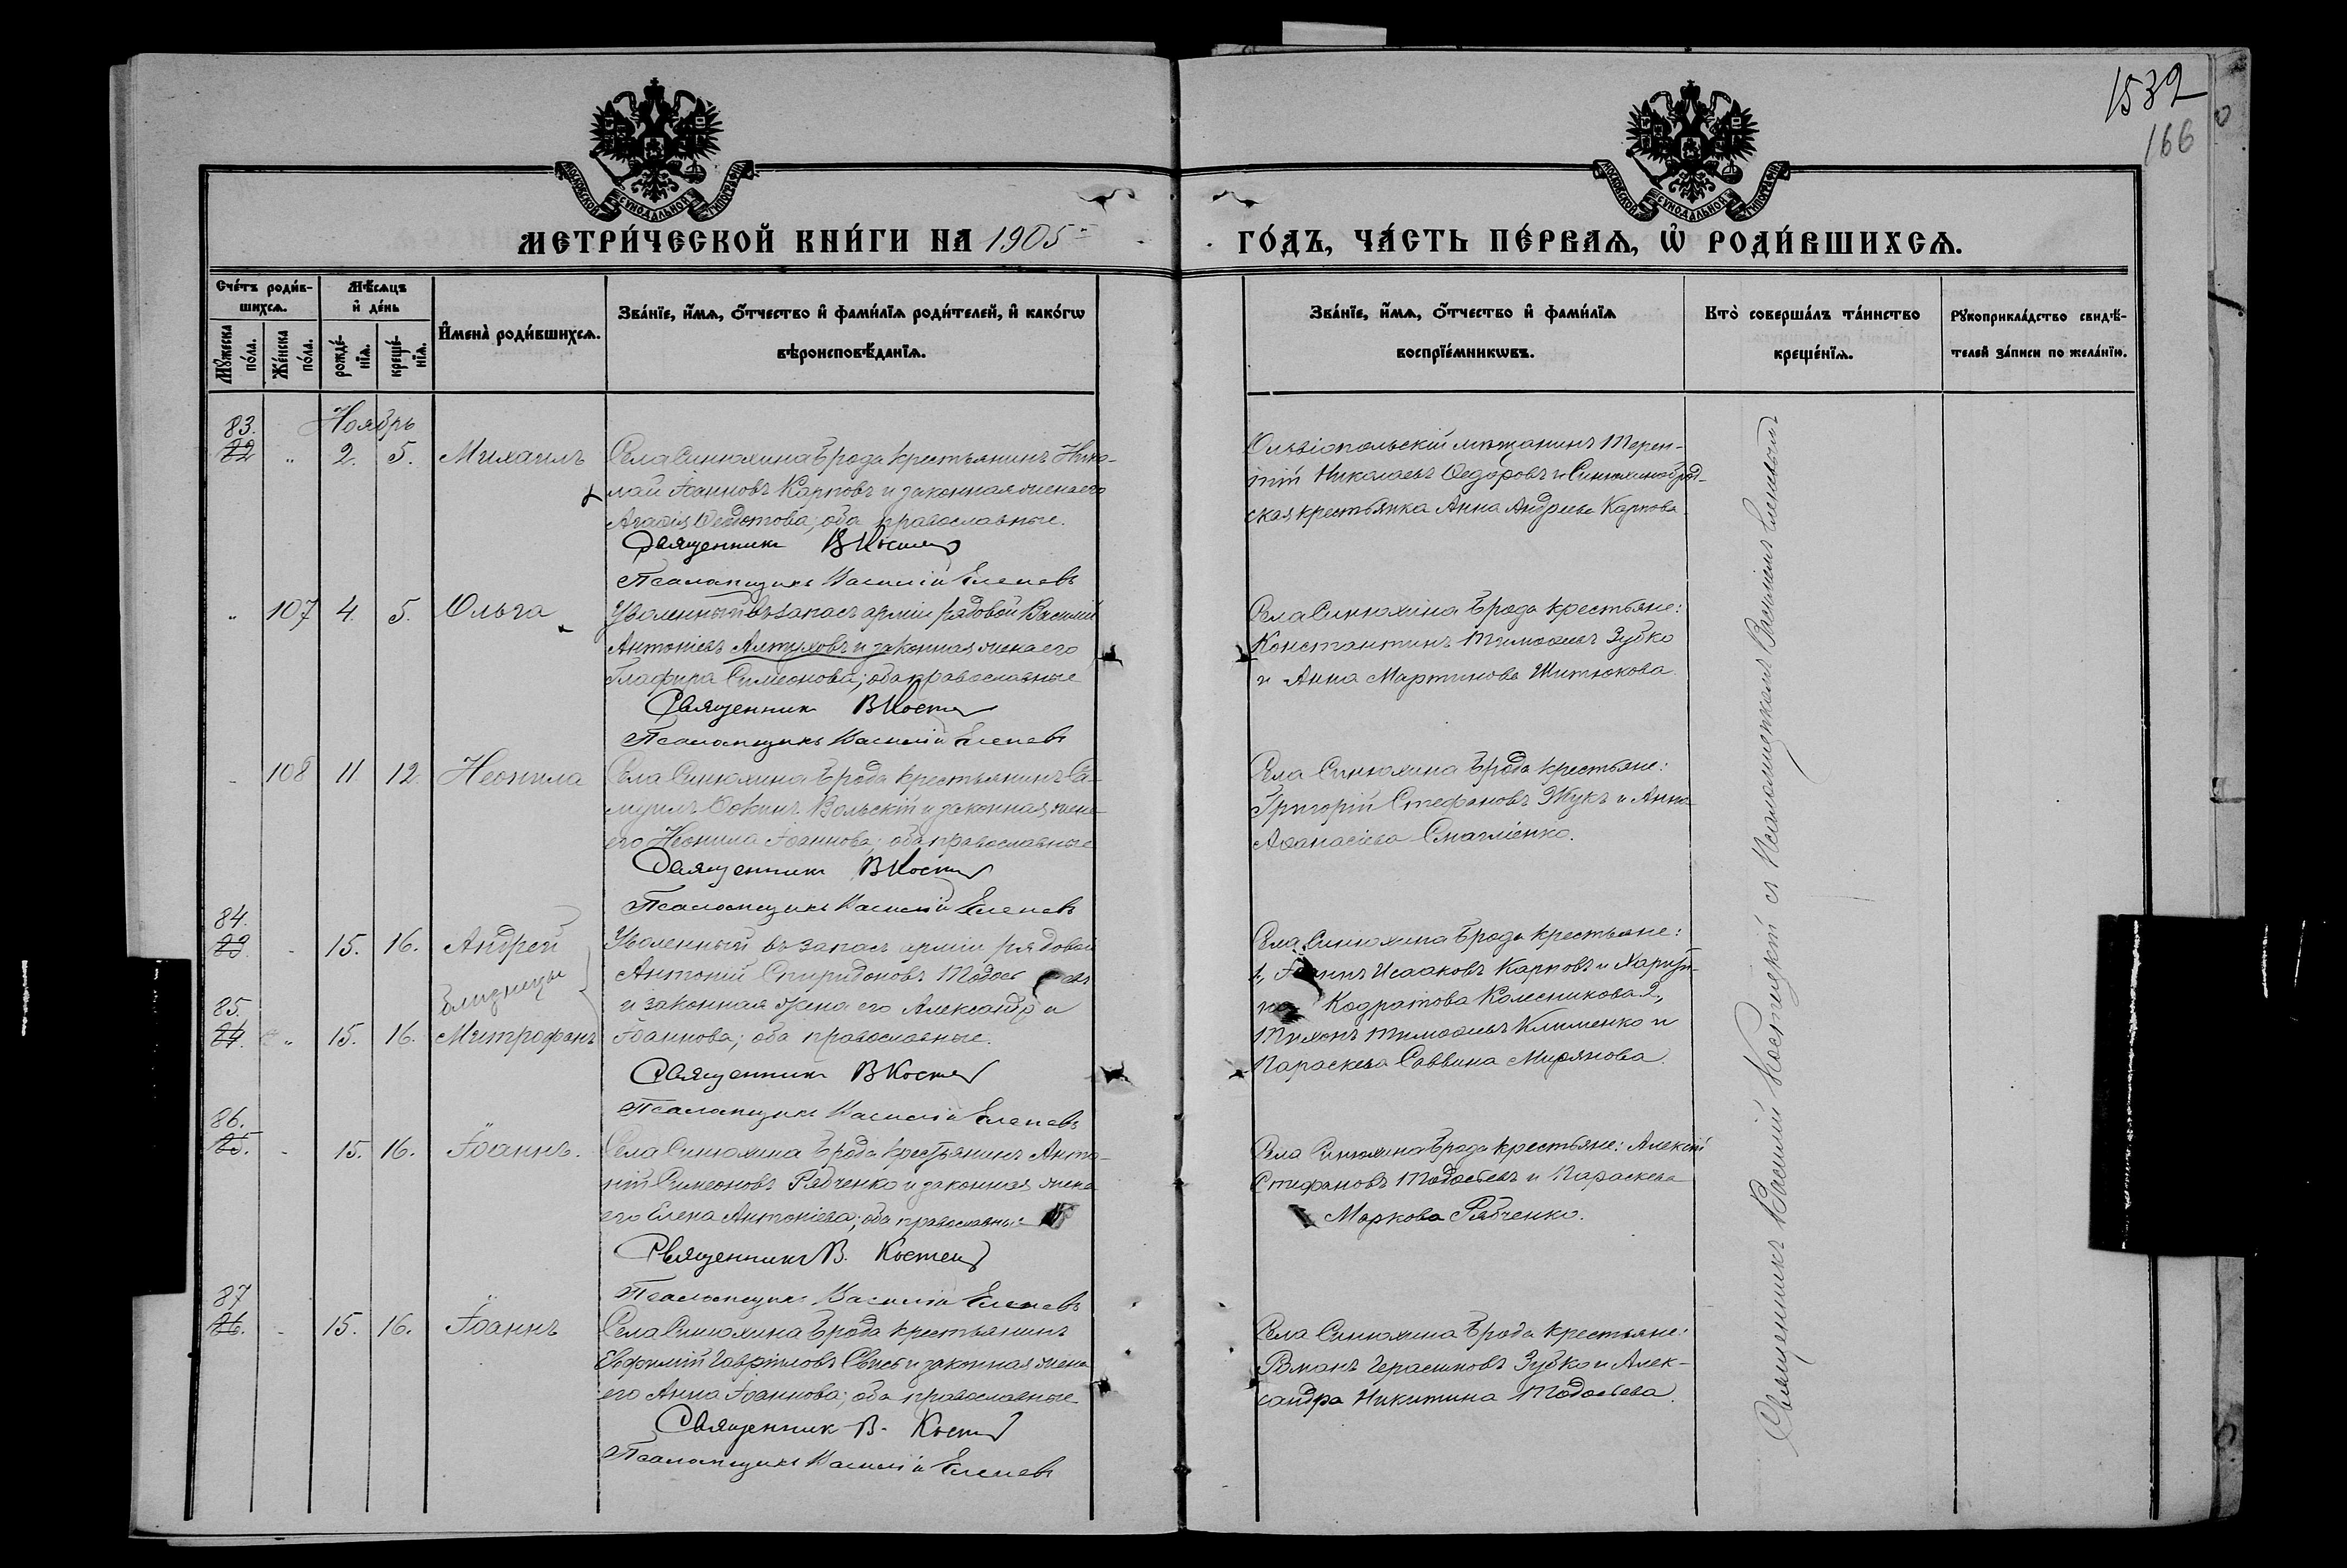 1532
166
МОСКОВСКОЙ СУНОДАЛЬНОЙ ТИПОГРАФІИ
МОСКОВСКОЙ СУНОДАЛЬНОЙ ТИПОГРАФІИ
МЕТРИ́ЧЕСКОЙ КНИ́ГИ НА 1905
ГО́ДЪ, ЧА́СТЬ ПЕ́РВАѦ, Ѡ҆ РОДИ́ВШИХСѦ.
Сче́тъ роди́в-
шихсѧ.
Мꙋ́жеска по́ла.
Же́нска по́ла.
Мѣ́сѧцъ
и҆ де́нь
рожде́-
нїѧ.
креще́-
нїѧ.
И҆мена̀ роди́вшихсѧ.
Зва́нїе, и҆́мѧ, ѻ҆́тчество и҆ фами́лїѧ роди́телей, и҆ како́гѡ
вѣроисповѣ́данїѧ.
Зва́нїе, и҆́мѧ, ѻ҆́тчество и҆ фами́лїѧ
воспрїе́мникѡвъ.
Кто̀ соверша́лъ та́инство
креще́нїѧ.
Рꙋкоприкла́дство свидѣ́-
телей за́писи по жела́нїю.
Ноябрь
83.
82 " 2. 5. Михаилъ
Села Синюхина Брода крестьянинъ Нико-
лай Іоанновъ Карповъ и законная жена его
Агаѳія Ѳедотова; оба православные.
Священникъ В Костец
Псаломщикъ Василій Еленевъ
Ольвіопольскій мѣщанинъ Терен-
тій Николаевъ Ѳедоровъ и Синюхиноброд-
ская крестьянка Анна Андреева Карпова
" 107 4. 5. Ольга
Уволенный въ запасъ арміи рядовой Василій
Антоніевъ Алтуховъ и законная жена его
Глафира Симеонова; оба православные
Священникъ В Костец
Псаломщикъ Василій Еленевъ
Села Синюхина Брода крестьяне:
Константинъ Тимоѳеевъ Зубко
и Анна Мартинова Шитюкова.
108 11 12. Неонила
Села Синюхина Брода крестьянинъ Са-
муилъ Вольскій и законная жена
его Неонила Іоаннова; оба православные
Священникъ В Костец
Псаломщикъ Василій Еленевъ
Села Синюхина Брода крестьяне:
Григорій Стефановъ Жукъ и Анна
Аѳанасіева
84.
83 15. 16. Андрей
близнецы
85.
84. " 15. 16. Митрофанъ
Уволенный въ запасъ арміи рядовой
Антоній Спиридоновъ
и законная жена его Александра
Іоаннова; оба православные.
Священникъ В Костец
Псаломщикъ Василій Еленевъ
Села Синюхина Брода крестьяне:
1, Іоаннъ Исааковъ Карповъ и
Кодратова Колесникова 2,
Тихонъ Тимоѳеевъ Клименко и
Параскева Саввина Мирянова.
86.
85. 15. 16. Іоаннъ.
Села Синюхина Брода крестьянинъ Анто-
ній Симеоновъ Рябченко и законная жена
его Елена Антоніева; оба православные
Священникъ В. Костец
Псаломщикъ Василій Еленевъ
Села Синюхина Брода крестьяне: Алексій
Стефановъ Тодосьевъ и Параскева
Маркова Рябченко.
87
86. 15. 16. Іоаннъ
Села Синюхина Брода крестьянинъ
Евфимій Гавріиловъ и законная жена
его Анна Іоаннова; оба православные
Священник В. Костец
Псаломщикъ Василій Еленевъ
Села Синюхина Брода крестьяне:
Романъ Герасимовъ Зубко и Алек-
сандра Никитина Тодосьева.
Священникъ Василій Костецкій съ Псаломщикомъ Василіемъ Еленевымъ